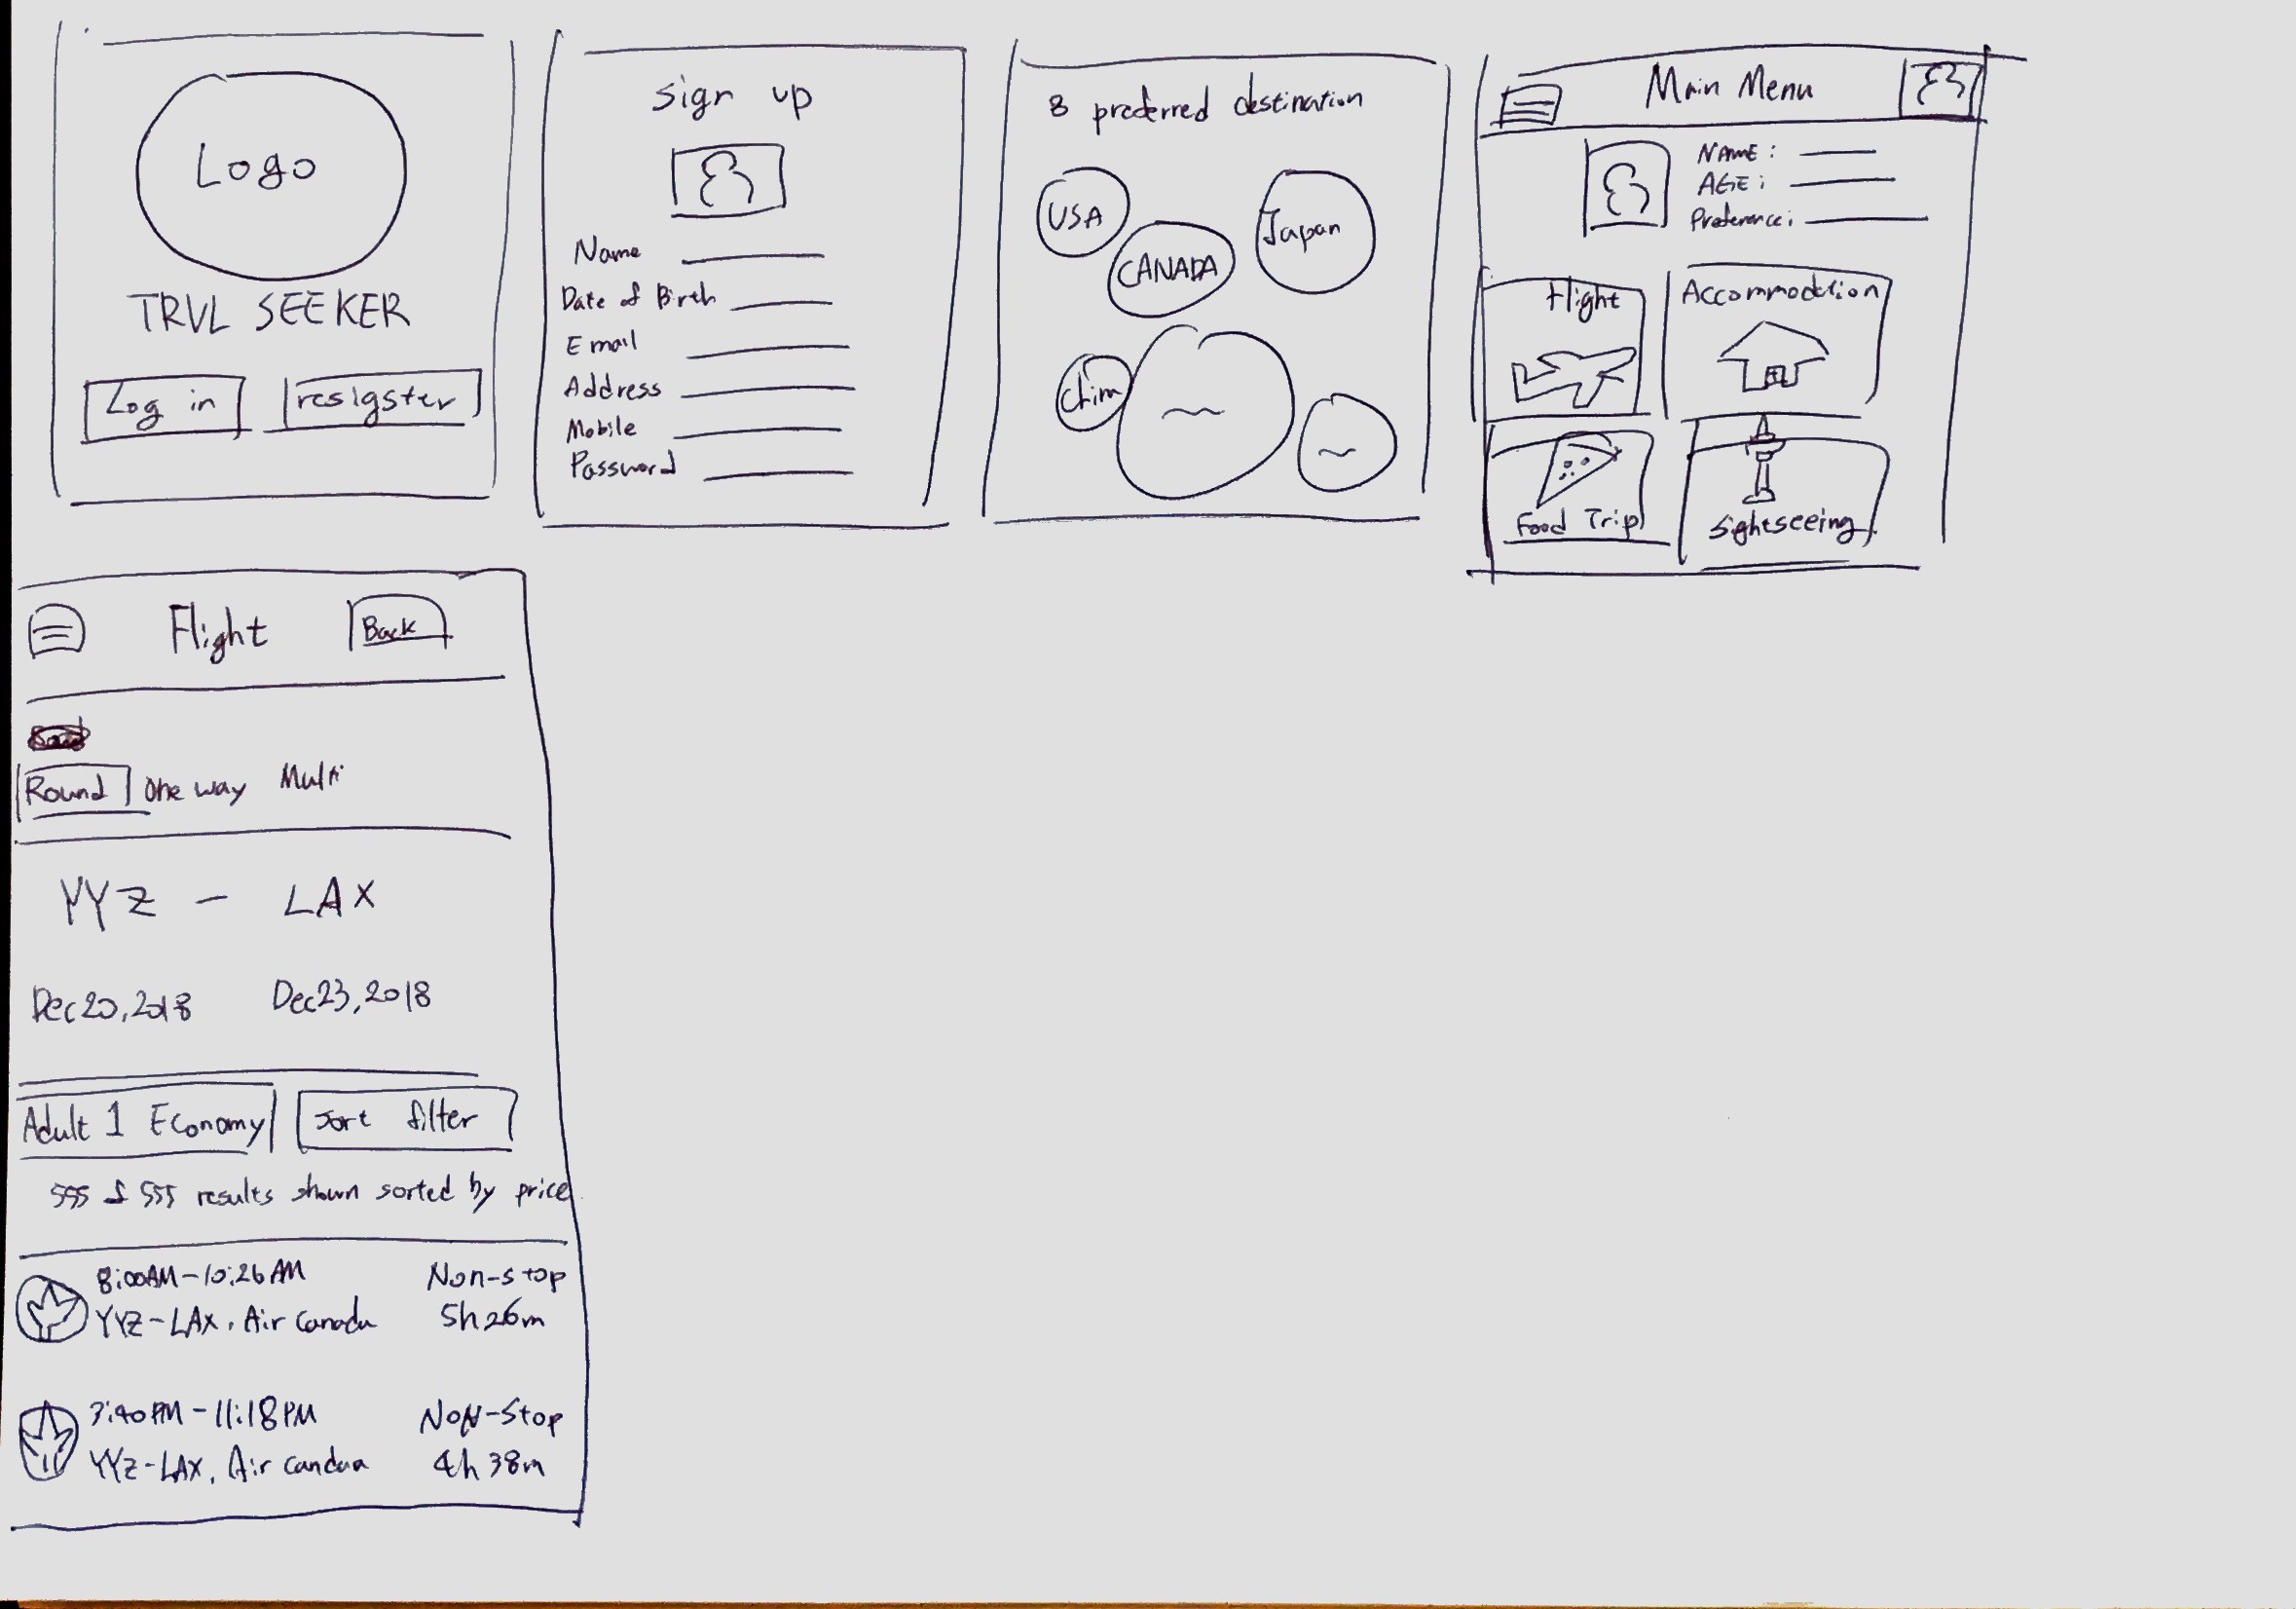 Logo
TRVL SEEKER
Log in
resigster
sign up
Name
Date of Birth
Email
Address
Mobile
Password
8 preferred destination
USA
CANADA
Japan
Main Menu
NAME :
AGE :
Preference :
Flight
Accommodation
Food Trip
Sightseeing
Flight
Back
Round One way Multi
YYZ - LAX
Dec 20, 2018 Dec 23, 2018
Adult 1 Economy
Sort filter
555 of 555 results shown sorted by price
8:00AM - 10:26 AM Non-stop
YYZ - LAX, Air Canada 5h 26m
7:40 PM - 11:18 PM NoN-Stop
YYZ - LAX, Air candaa 4h 38m